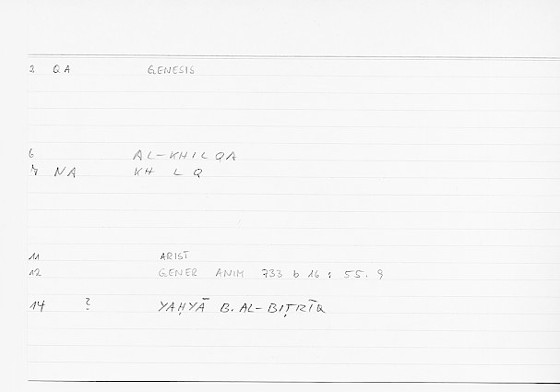 2 QA GENESIS
6 AL-KHILQA
7 NA KH L Q
11 ARIST
12 GENER ANIM 733 b 16 : 55.9
14 ? YAḤYĀ B. AL-BIṬRĪQ